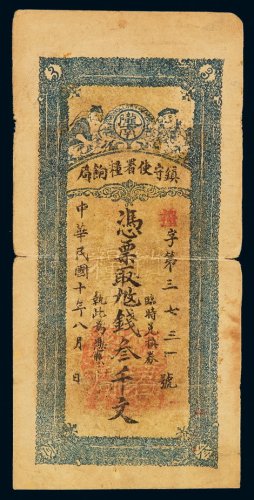 鎮守使署糧餉局
字第三七三一號
憑票取㡳錢叁千文
臨時兌換券
執此為憑
中華民國十年八月 日